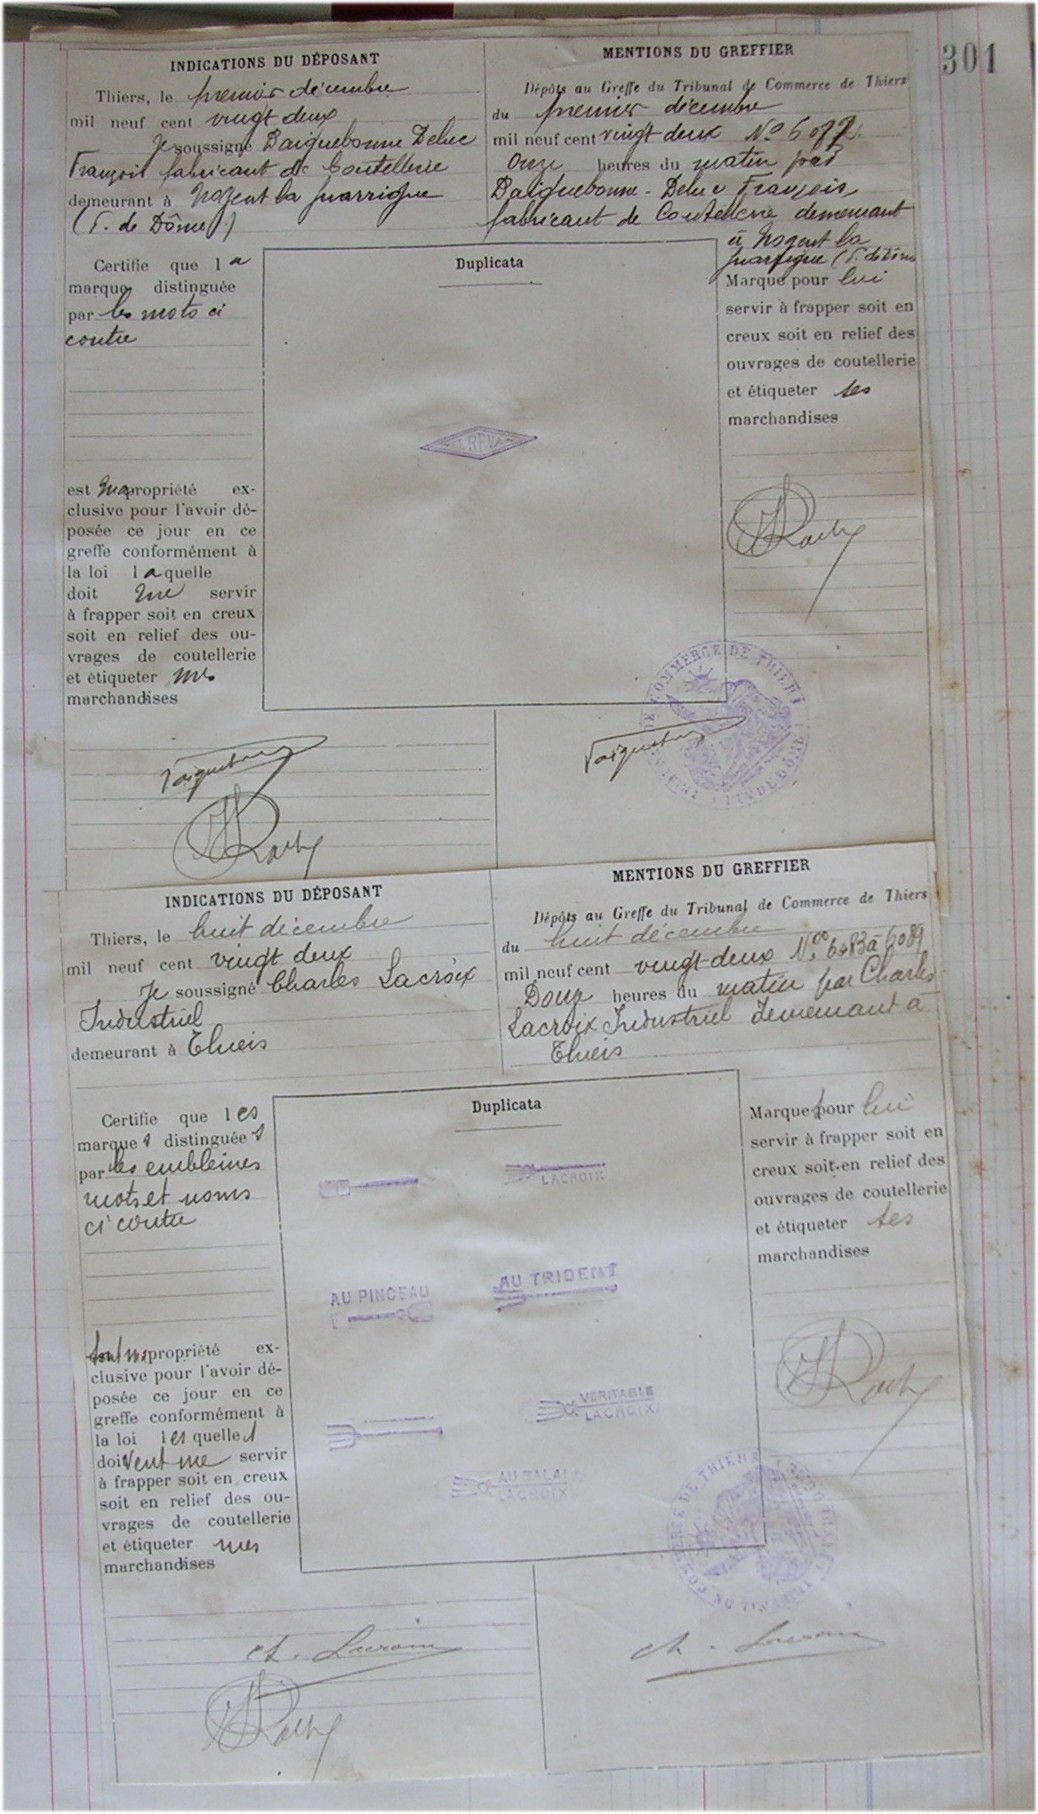 301
INDICATIONS DU DÉPOSANT
Thiers, le premier décembre
mil neuf cent vingt deux
Je soussigné Daiguebonne Deluc
François fabricant de Coutellerie
demeurant à
(P. de Dôme)
MENTIONS DU GREFFIER
Dépôts au Greffe du Tribunal de Commerce de Thiers
du premier décembre
mil neuf cent vingt deux No 6082
Onze heures du matin par
Daiguebonne - Deluc François
fabricant de Coutellerie demeurant
à
(P. de Dôme
Certifie que la
marque distinguée
par les mots ci
contre
est ma propriété ex-
clusive pour l'avoir dé-
posée ce jour en ce
greffe conformément à
la loi laquelle
doit me servir
à frapper soit en creux
soit en relief des ou-
vrages de coutellerie
et étiqueter mes
marchandises
Duplicata
Marque pour lui
servir à frapper soit en
creux soit en relief des
ouvrages de coutellerie
et étiqueter ses
marchandises
DE COMMERCE DE THIERS
INDICATIONS DU DÉPOSANT
Thiers, le huit décembre
mil neuf cent vingt deux
Je soussigné Charles Lacroix
Industriel
demeurant à Thiers
MENTIONS DU GREFFIER
Dépôts au Greffe du Tribunal de Commerce de Thiers
du huit décembre
mil neuf cent vingt-deux Nos 6083 à 6089
Douze heures du matin par Charles
Lacroix Industriel demeurant à
Thiers
Certifie que les
marques distinguées
par les emblèmes
mots et noms
ci contre
sont ma propriété ex-
clusive pour l'avoir dé-
posée ce jour en ce
greffe conformément à
la loi lesquelles
doivent me servir
à frapper soit en creux
soit en relief des ou-
vrages de coutellerie
et étiqueter mes
marchandises
Duplicata
LACROIX
AU PINCEAU
AU TRIDENT
VERITABLE
LACROIX
AU BALAI
LACROIX
Marque pour lui
servir à frapper soit en
creux soit en relief des
ouvrages de coutellerie
et étiqueter ses
marchandises
DE THIERS
ch. Lacroix
ch. Lacroix